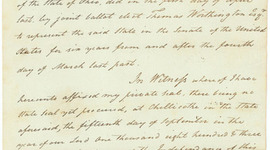 of the State of Ohio, did on the first day of April
last, by joint ballot elect Thomas Worthington Esq.
to represent the said State in the Senate of the United
States for six years from and after the fourth
day of March last past.
In Witness whereof I have
hereunto affixed my private seal, there being no
State Seal yet procured, at Chillicothe in the State
aforesaid, the fifteenth day of September in the
year of our Lord one thousand eight hundred & three
the Independence of this